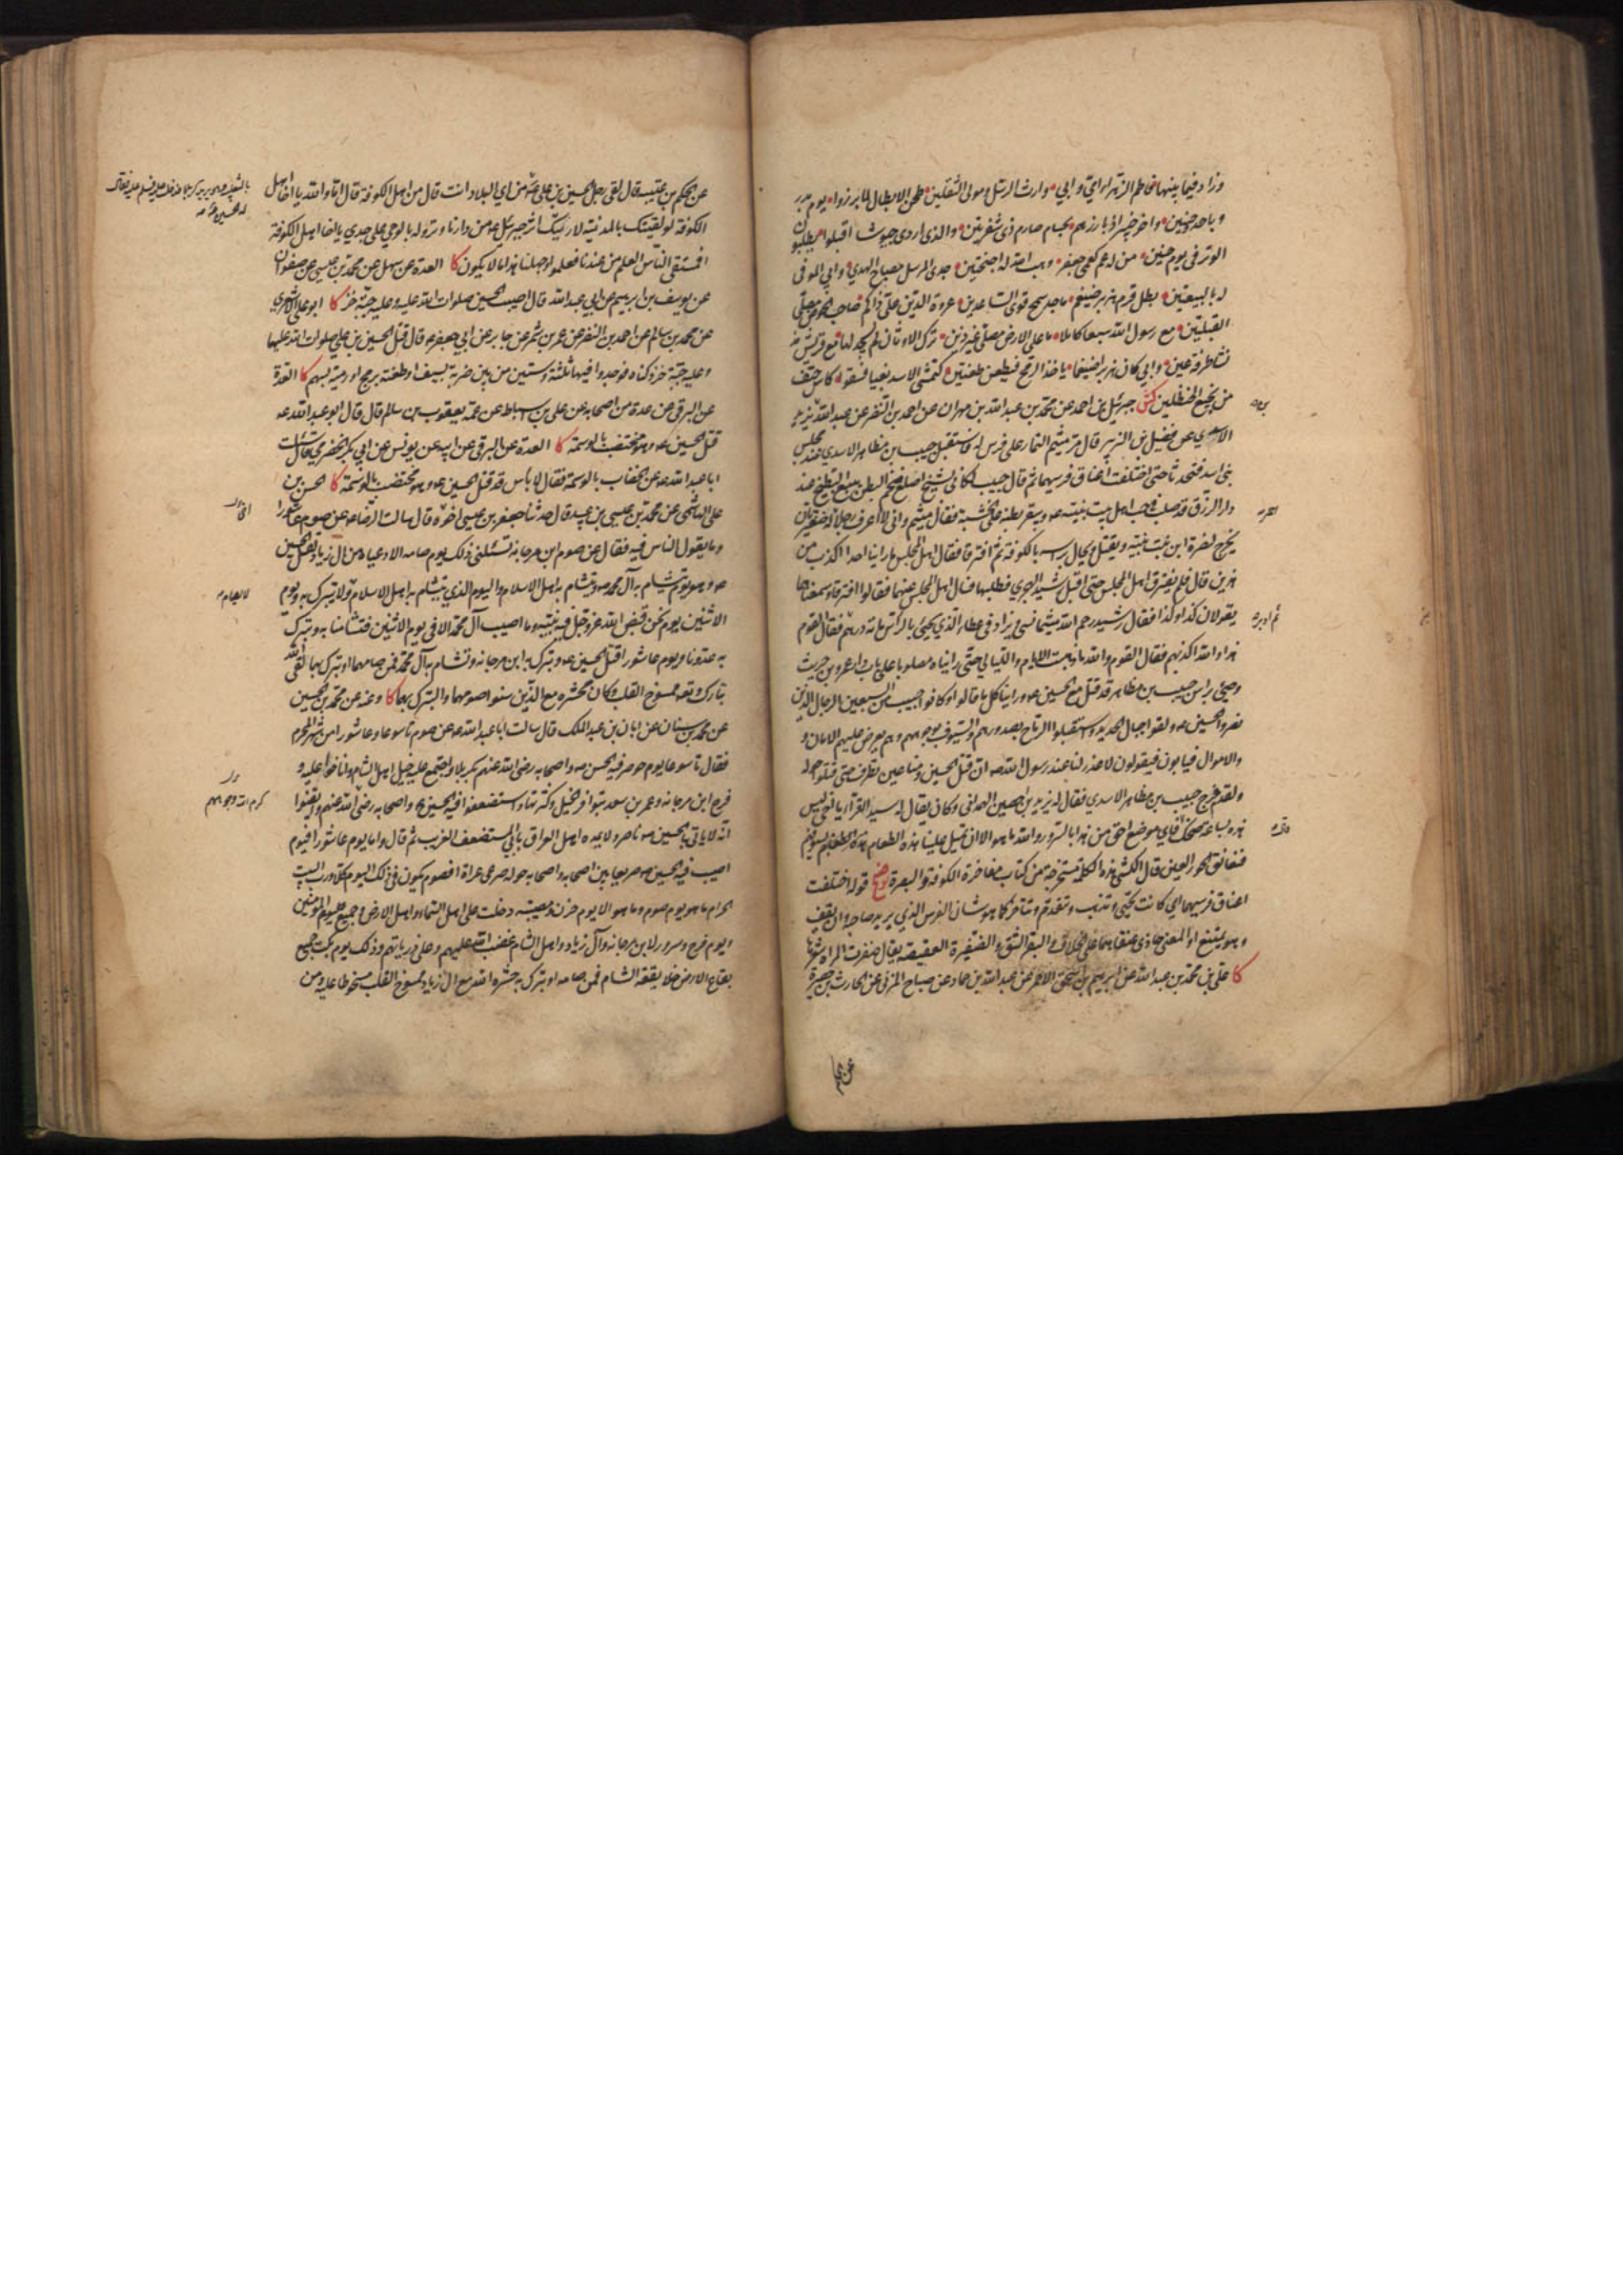 وزاد فيما بينها فاطم الزهراء امي وابي • وارث الرسل ومولى الثقلين • طحن الابطال لما برزوا • يوم بدر
وباحد وحنين • واخو خيبر اذ بارزهم • بحسام صارم ذي شفرتين • والذي اردى جيوشا اقبلوا • يطلبون
الوتر في يوم حنين • من له عم كعمي جعفر • وهب الله له اجنحتين • جدي المرسل مصباح الهدى • وابي الموفى
له بالبيعتين • بطل قرم هزبر ضيغم • ماجد سمح قوي الساعدين • عروة الدين علي ذاكم • صاحب الحوض مصلي
القبلتين • مع رسول الله سبعا كاملا • ما على الارض مصلي غير ذين • ترك الاوثان لم يسجد لها • مع قريش مذ
نشا طرفة عين • وابي كان هزبرا ضيغما • ياخذ الرمح فيطعن طعنتين • كتمشي الاسد بغيا فسقوا • كاس حتف
من نجيع الحنظلين كش جبرئيل بن احمد عن محمد بن عبد الله بن مهران عن احمد بن النضر عن عبد الله بن يزيد
الاسدي عن فضيل بن الزبير قال مر ميثم التمار على فرس له فاستقبل حبيب بن مظاهر الاسدي عند مجلس
بني اسد فتحدثا حتى اختلفت اعناق فرسيهما ثم قال حبيب لكاني بشيخ اصلع ضخم البطن يبيع البطيخ عند
دار الرزق قد صلب في حب اهل بيت نبيه عه ويبقر بطنه على الخشبة فقال ميثم واني لاعرف رجلا له ضفيرتان
يخرج لنصرة ابن بنت نبيه ويقتل ويجال براسه بالكوفة ثم افترقا فقال اهل المجلس ما راينا احدا اكذب من
هذين قال فلم يفترق اهل المجلس حتى اقبل رشيد الهجري فطلبهما فسال اهل المجلس عنهما فقالوا افترقا وسمعناهما
يقولان كذا وكذا فقال رشيد رحم الله ميثما نسي ويزاد في عطاء الذي يجيئ بالراس مائة درهم فقال القوم
هذا والله اكذبهم فقال القوم والله ما ذهبت الايام والليالي حتى رايناه مصلوبا على باب دار عمرو بن حريث
وجيئ براس حبيب بن مظاهر قد قتل مع الحسين عه وراينا كل ما قالوا وكان حبيب من السبعين الرجال الذين
نصروا الحسين عه ولقوا جبال الحديد واستقبلوا الرماح بصدورهم والسيوف بوجوههم وهم يعرض عليهم الامان و
والاموال فيابون فيقولون لا عذر لنا عند رسول الله صه ان قتل الحسين ومنا عين تطرف حتى قتلوا حوله
ولقد خرج حبيب بن مظاهر الاسدي فقال له يزيد بن حصين الهمداني وكان يقال له سيد القراء يا اخي ليس
هذه بساعة ضحك قال فاي موضع احق من هذا بالسرور والله ما هو الا ان تميل علينا هذه الطغام بسيوفهم
فنعانق الحور العين قال الكشي هذه الكلمة مستخرجة من كتاب مفاخرة الكوفة والبصرة توضيح قوله اختلفت
اعناق فرسيهما اي كانت تجيئ وتذهب وتتقدم وتتاخر كما هو شان الفرس الذي يريد صاحبه ان يقف
وهو يمتنع او المعنى حاذى عنقاهما على الخلاف والبقر الشق والضفيرة العقيصة يقال ضفرت المراة شعرها
كا علي بن محمد بن عبد الله عن ابرهيم بن اسحق الاحمر عن عبد الله بن حماد عن صباح المزني عن الحارث بن حصيرة
ثم ادبره
عن الحكم
عن الحكم بن عتيبة قال لقي رجل الحسين بن علي عه من اي البلاد انت قال من اهل الكوفة قال اما والله يا اخا اهل
الكوفة لو لقيتك بالمدينة لاريتك اثر جبرئيل عه من دارنا ونزوله بالوحي على جدي يا اخا اهل الكوفة
افمستقى الناس العلم من عندنا فعلموا وجهلنا هذا ما لا يكون كا العدة عن سهل عن محمد بن عيسى عن صفوان
عن يوسف بن ابرهيم عن ابي عبد الله قال اصيب الحسين صلوات الله عليه وعليه جبة خز كا ابو علي الاشعري
عن محمد بن سالم عن احمد بن النضر عن عمرو بن شمر عن جابر عن ابي جعفر عه قال قتل الحسين بن علي صلوات الله عليهما
وعليه جبة خز دكناء فوجدوا فيها ثلثة وستين من بين ضربة بسيف او طعنة برمح او رمية بسهم كا العدة
عن البرقي عن عدة من اصحابه عن علي بن اسباط عن عمه يعقوب بن سالم قال قال ابو عبد الله عه
قتل الحسين عه وهو مختضب بالوسمة كا العدة عن البرقي عن ابيه عن يونس عن ابي بكر الحضرمي قال سالت
ابا عبد الله عه عن الخضاب بالوسمة فقال لا باس قد قتل الحسين عه وهو مختضب بالوسمة كا الحسن بن
علي الهاشمي عن محمد بن عيسى بن عبيد قال حدثنا جعفر بن عيسى اخوه قال سالت الرضا عه عن صوم عاشورا
وما يقول الناس فيه فقال عن صوم ابن مرجانة تسئلني ذلك يوم صامه الادعياء من آل زياد لقتل الحسين
عه وهو يوم يتشاءم به آل محمد صه ويتشاءم به اهل الاسلام واليوم الذي يتشاءم به اهل الاسلام ولا يتبرك به ويوم
الاثنين يوم نحس قبض الله عز وجل فيه نبيه وما اصيب آل محمد الا في يوم الاثنين فتشاءمنا به وتبرك
به عدونا ويوم عاشورا قتل الحسين عه وتبرك به ابن مرجانة وتشاءم به آل محمد فمن صامهما او تبرك بهما لقي الله
تبارك وتعه ممسوخ القلب وكان محشره مع الذين سنوا صومهما والتبرك بهما كا وعنه عن محمد بن الحسين
عن محمد بن سنان عن ابان بن عبد الملك قال سالت ابا عبد الله عه عن صوم تاسوعا وعاشورا من شهر المحرم
فقال تاسوعا يوم حوصر فيه الحسين عه واصحابه رضي الله عنهم بكربلا واجتمع عليه خيل اهل الشام واناخوا عليه و
فرح ابن مرجانة وعمر بن سعد بتوافر الخيل وكثرتها واستضعفوا فيه الحسين عه واصحابه رضي الله عنهم وايقنوا
انه لا ياتي الحسين عه ناصر ولا يمده اهل العراق بابي المستضعف الغريب ثم قال واما يوم عاشورا فيوم
اصيب فيه الحسين عه صريعا بين اصحابه واصحابه حوله صرعى عراة افصوم يكون في ذلك اليوم كلا ورب البيت
الحرام ما هو يوم صوم وما هو الا يوم حزن ومصيبة دخلت على اهل السماء واهل الارض وجميع المؤمنين
ويوم فرح وسرور لابن مرجانة وآل زياد واهل الشام غضب الله عليهم وعلى ذرياتهم وذلك يوم بكت جميع
بقاع الارض خلا بقعة الشام فمن صامه او تبرك به حشره الله مع آل زياد ممسوخ القلب مسخوطا عليه ومن
بالثعلبية وهو يريد كربلا فدخل عليه فسلم عليه فقال
له الحسين عه
كرم الله وجوههم